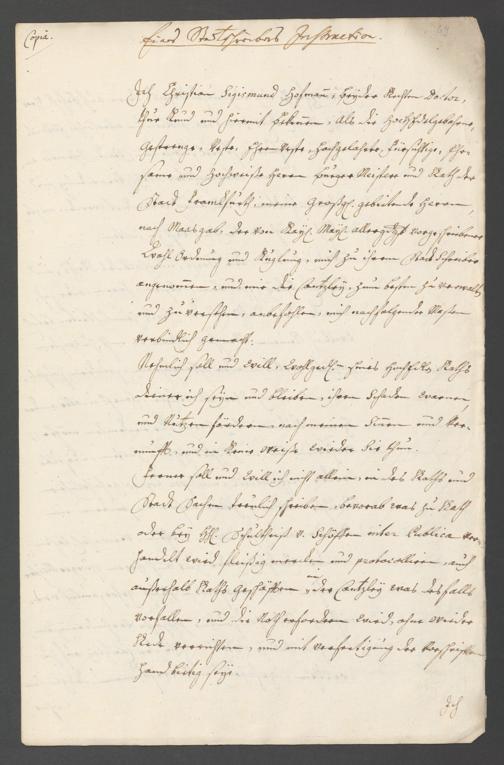 Copia.
Eines Stattschreibers Instruction.
Ich Christian Sigismund Hofmann, beyder Rechten Doctor,
thue kund und hiermit bekenne, Als die HochEdelgebohrne,
Gestrenge, Veste, Ehrenveste, Hochgelahrte, Fürsichtige, Ehr-
same und Hochweise Herren Burger Meister und Rath der
Statt Franckfurth, meine Großg. gebietende Herren,
nach Maasgab, der von Kayl. Mayt. allergdgst vorgeschriebener
Wahl Ordnung und Kuglung, mich zu ihrem Stattschreiber
angenommen, und mir die Cantzley, zum besten zu verwalten
und zu versehen, anbefohlen, mich nachfolgender Massen
verbindlich gemacht:
Nehmlich soll und will, Eines Raths
diener ich seyn und bleiben, ihren Schaden warnen,
und Nutzen fördern, nach meinen Sinnen und Ver-
nunfft, und in keine weise wieder Sie thun.
Ferner soll und will ich nicht allein, in des Raths und
Statt Sachen treulich schreiben, bevorab was zu Rath
oder bey Schultheis u. Schöffen inter Publica ver-
handelt wird, fleisig mercken und protocolliren, auch
auserhalb Raths Geschäfften, in der Cantzley was desfalls
vorfallen, und die Noth erfordern wird, ohne wieder
Rede verrichten, und mit verfertigung der
seye.
Ich